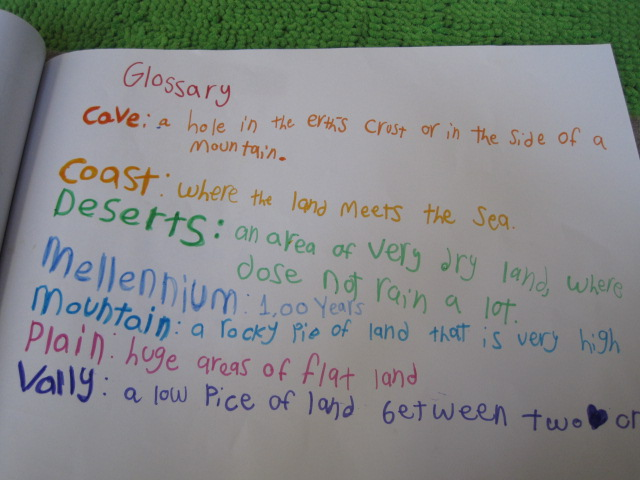 Glossary
Cave: a hole in the erth's crust or in the side of a
mountain.
Coast: where the land meets the sea.
Deserts: an area of very dry land, where
dose not rain a lot.
Mellennium: 1,00 Years
Mountain: a rocky pie of land that is very high
Plain: huge areas of flat land
Vally: a low pice of land between two or